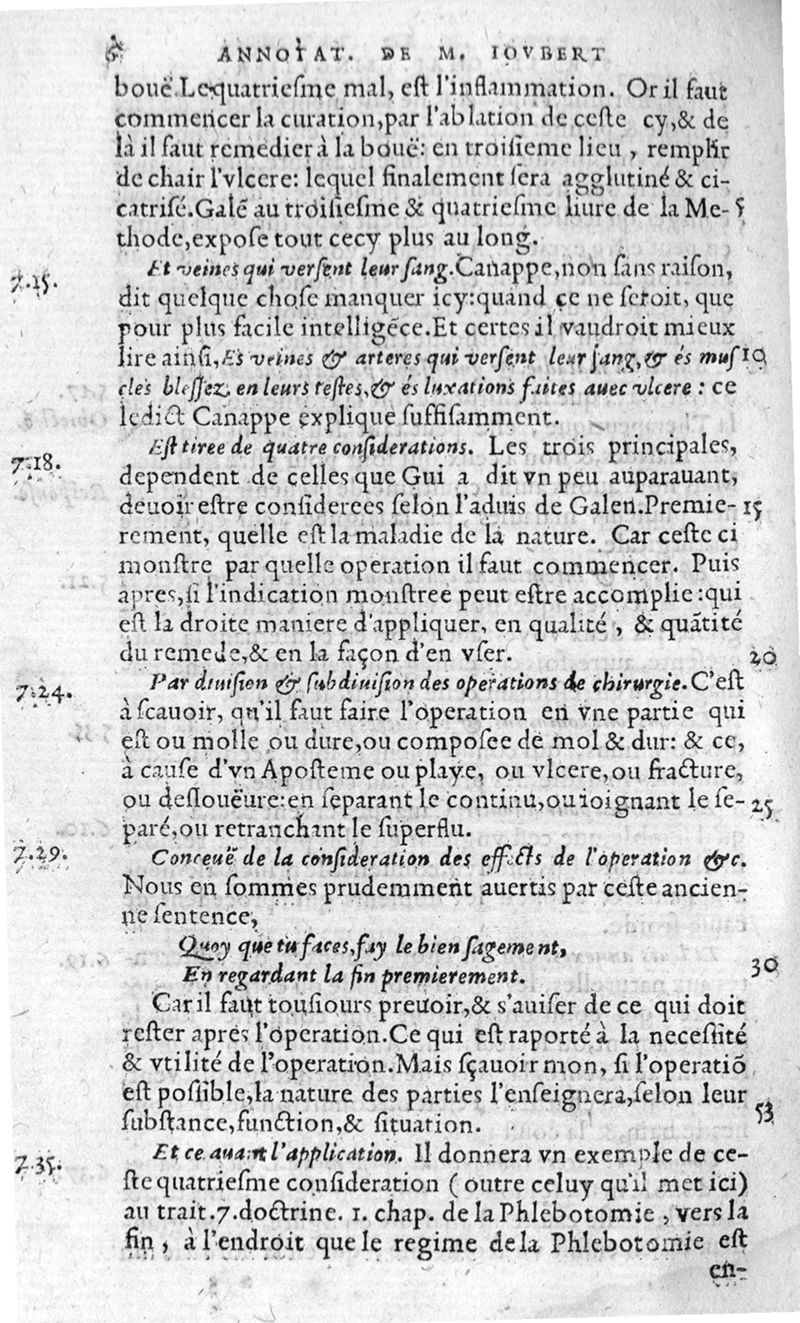 ANNOTAT. DE M. IOVBERT
bouë. Le quatriesme mal, est l'inflammation. Or il faut
commencer la curation, par l'ablation de ceste cy, & de
là il faut remedier à la bouë: en troisieme lieu, remplir
de chair l'vlcere: lequel finalement sera agglutiné & ci-
catrisé. Galẽ au troisiesme & quatriesme liure de la Me- 5
thode, expose tout cecy plus au long.
7.15. Et veines qui versent leur sang. Canappe, non sans raison,
dit quelque chose manquer icy: quand ce ne seroit, que
pour plus facile intelligẽce. Et certes il vaudroit mieux
lire ainsi, Es veines & arteres qui versent leur sang, & és mus 10
cles blessez, en leurs testes, & és luxations faites auec vlcere: ce
ledict Canappe explique suffisamment.
7.18. Est tiree de quatre considerations. Les trois principales,
dependent de celles que Gui a dit vn peu auparauant,
deuoir estre considerees selon l'aduis de Galen. Premie- 15
rement, quelle est la maladie de la nature. Car ceste ci
monstre par quelle operation il faut commencer. Puis
apres, si l'indication monstree peut estre accomplie: qui
est la droite maniere d'appliquer, en qualité, & quãtité
du remede, & en la façon d'en vser. 20
7.24. Par diuision & subdiuision des operations de chirurgie. C'est
à scauoir, qu'il faut faire l'operation en vne partie qui
est ou molle ou dure, ou composee de mol & dur: & ce,
à cause d'vn Aposteme ou playe, ou vlcere, ou fracture,
ou deslouëure: en separant le continu, ou ioignant le se- 25
paré, ou retranchant le superflu.
7.29. Conceuë de la consideration des effects de l'operation &c.
Nous en sommes prudemment auertis par ceste ancien-
ne sentence,
Quoy que tu faces, fay le bien sagement,
En regardant la fin premierement. 30
Car il faut tousiours preuoir, & s'auiser de ce qui doit
rester apres l'operation. Ce qui est raporté à la necessité
& vtilité de l'operation. Mais sçauoir mon, si l'operatiõ
est possible, la nature des parties l'enseignera, selon leur
substance, function, & situation. 53
7.35. Et ce auant l'application. Il donnera vn exemple de ce-
ste quatriesme consideration (outre celuy qu'il met ici)
au trait. 7. doctrine. 1. chap. de la Phlebotomie, vers la
fin, à l'endroit que le regime de la Phlebotomie est
en-